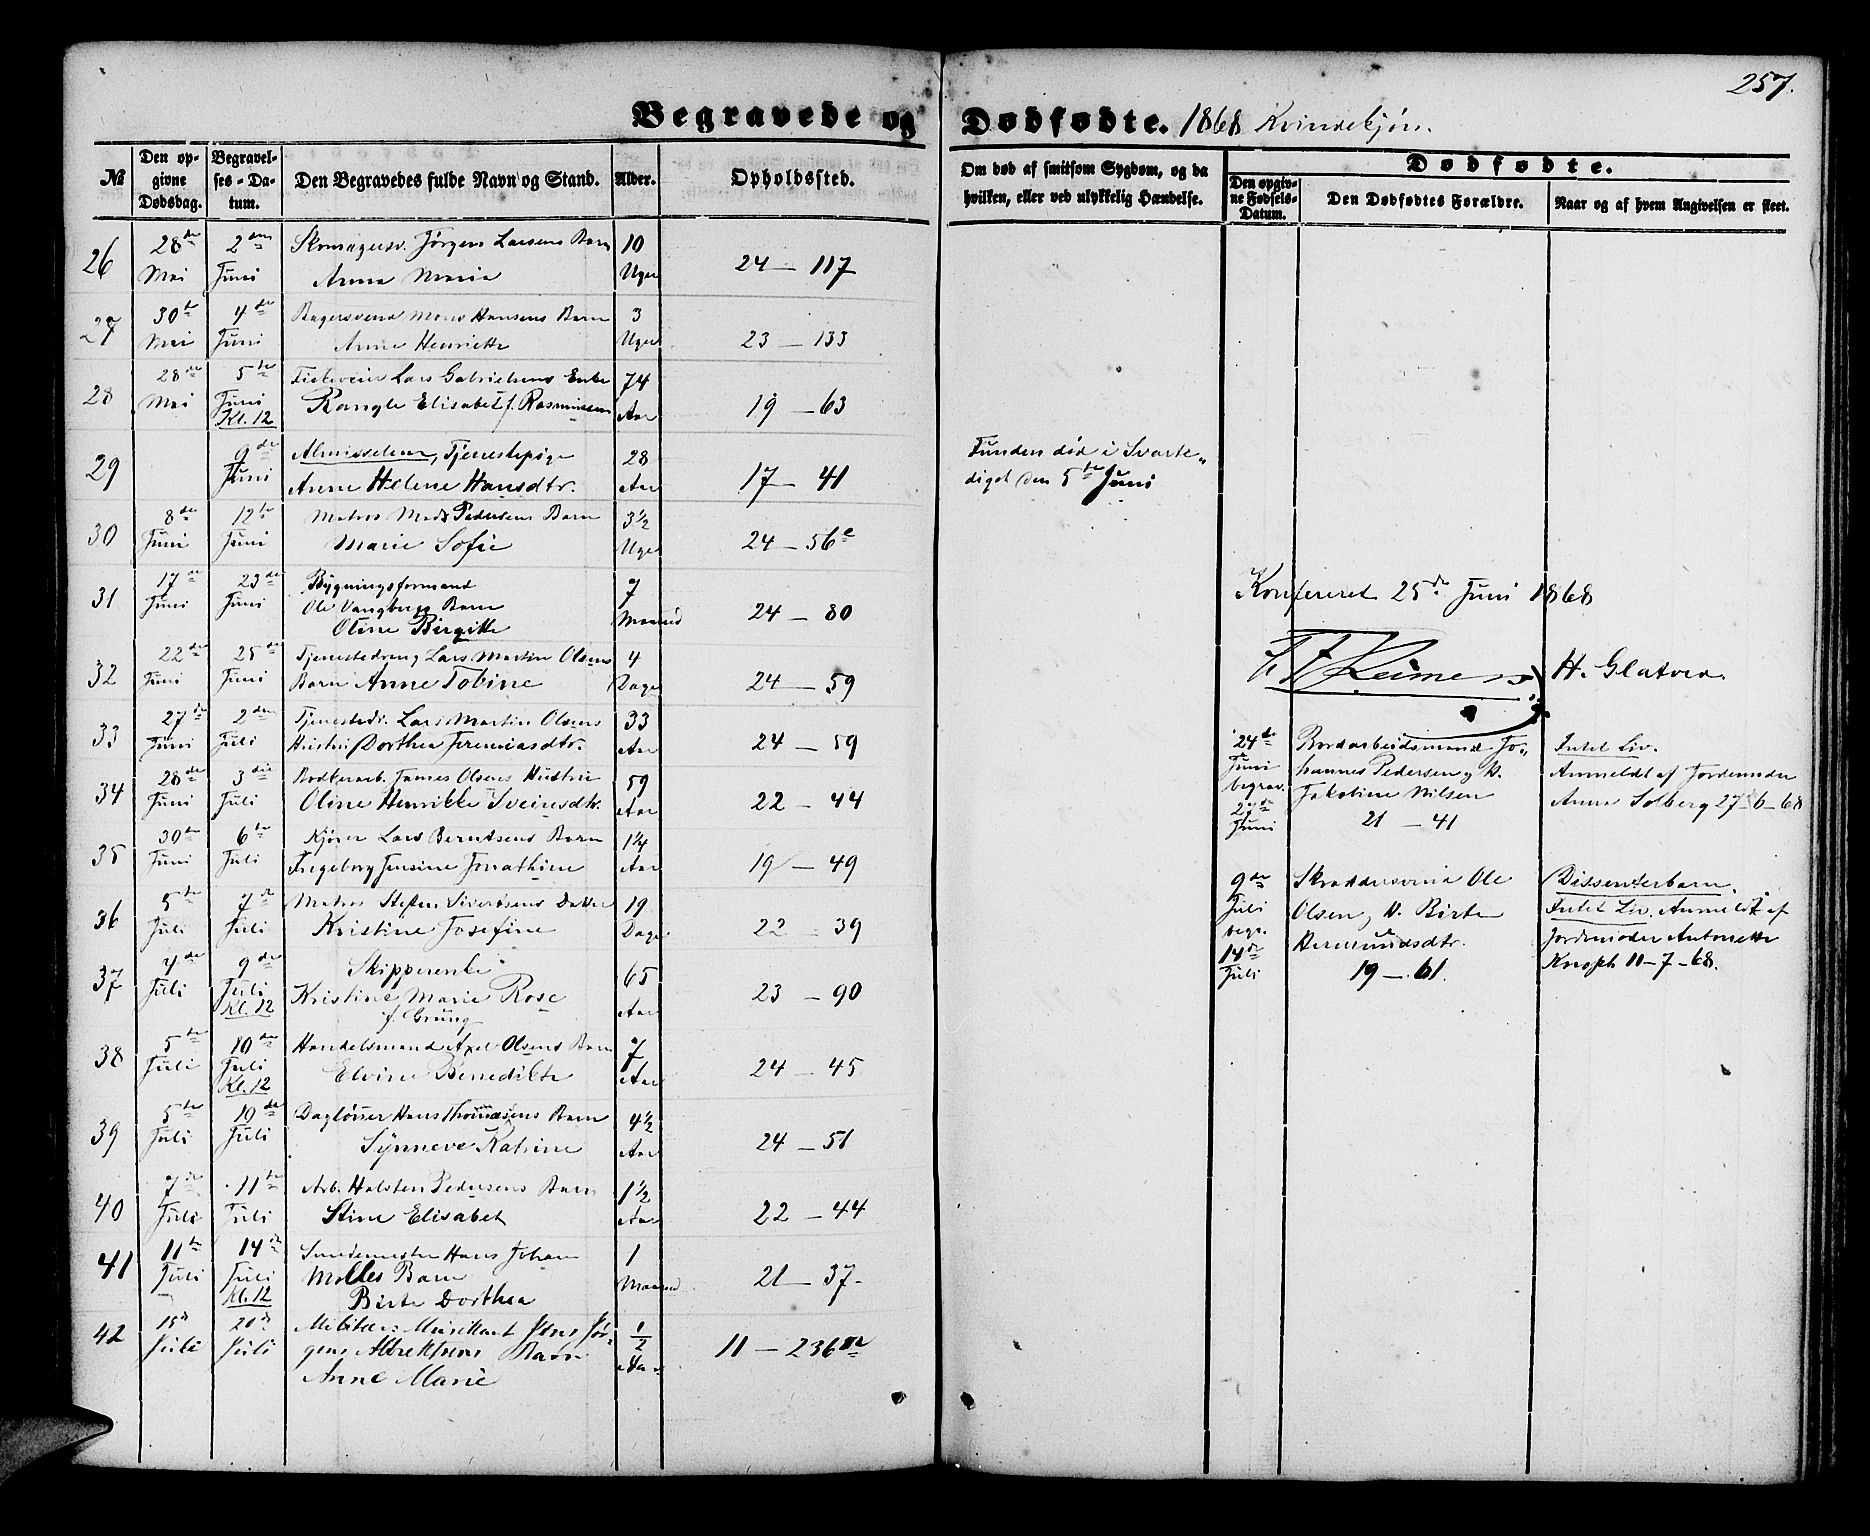 257.
Begravede og Dødfødte. 1868 Kvindekjøn.
№
Den opgivne Dødsdag.
Begravelses-Datum.
Den Begravedes fulde Navn og Stand.
Alder.
Opholdssted.
Om død af smitsom Sygdom, og da hvilken, eller ved ulykkelig Hændelse.
Dødfødte.
Den opgivne Fødsels-Datum.
Den Dødfødtes Forældre.
Naar og af hvem Angivelsen er skeet.
26 28de Mai 2den Juni Skomagersv. Jørgen Larsens Barn 10 Uger 24 — 117
Anna Maria
27 30te Mai 4de Juni Bagersvend Mons Hansens Barn 3 Uger 23 — 133
Anne Henriette
28 28de Mai 5te Juni Kl. 12 Fiskeveier Lars Gabrielsens Enke 74 Aar 19 — 63
Rangle Elisabet f. Rasmussen
29 9de Juni Almisselem, Tjenestepige 28 Aar 17 — 41
Anne Helene Hansdtr.
Funden død i Svarte-
diget den 5te Juni
30 8de Juni 12te Juni Matros Mads Pedersens Barn 3½ Uger 24 — 56e
Marie Sofie
31 17de Juni 23de Juni Bygningsformand 7 Maaned 24 — 80
Ole Vangbergs Barn
Oline Birgitte
32 22de Juni 25de Juni Tjenestedreng Lars Martin Olsens 4 Dage 24 — 59
Barn Anne Tobine
33 27de Juni 2den Juli Tjenestedr. Lars Martin Olsens 33 Aar 24 — 59
Hustru Dorthea Jeremiasdtr.
34 28de Juni 3die Juli Bodkerarb. James Olsens Hustru 59 Aar 22 — 44
Oline Henrikke Sveinsdtr.
35 30te Juni 6te Juli Kjører Lars Berntsens Barn 1¼ Aar 19 — 49
Ingeborg Jensine Jonathine
36 5te Juli 7de Juli Matros Steffen Sivertsens Datter 19 Dage 22 — 39
Kristine Josefine
37 4de Juli 9de Juli Kl. 12 Skipperenke 65 Aar 23 — 90
Kristine Marie Rose
f. Grung
38 5te Juli 10de Juli Kl. 12 Handelsmand Axel Olsens Barn 7 Aar 24 — 45
Elvine Benedikte
39 5te Juli 10de Juli Dagløner Hans Thomasens Barn 4½ Aar 24 — 51
Synneve Katrine
40 7de Juli 11te Juli Arb. Halsten Pedersens Barn 1½ Aar 22 — 44
Stine Elisabet
41 11te Juli 14de Juli Kl. 12 Smedemester Hans Johan 1 Maaned 21 — 37.
Molles Barn
Birte Dorthea
42 15de Juli 20de Juli Militær: Musikant Jens Jør- ½ Aar 11 — 236
gens Albrektsens Barn
Anne Marie
Konfereret 25de Juni 1868
H. Glatved
24de Juni begrav. 27de Juni
Bordarbeidsmand Jo-
hannes Pedersen og H.
Jakobine Nilsen
21 — 41
Intet Liv.
Anmeldt af Jordemoder
Anna Solberg 27-6-68
9de Juli begr. 14de Juli
Skræddersvend Ole
Olsen og H. Birte
Hermundsdtr.
19 — 61.
Dissenterbarn.
Intet Liv. Anmeldt af
Jordemoder Antonette
Knoph 11-7-68.